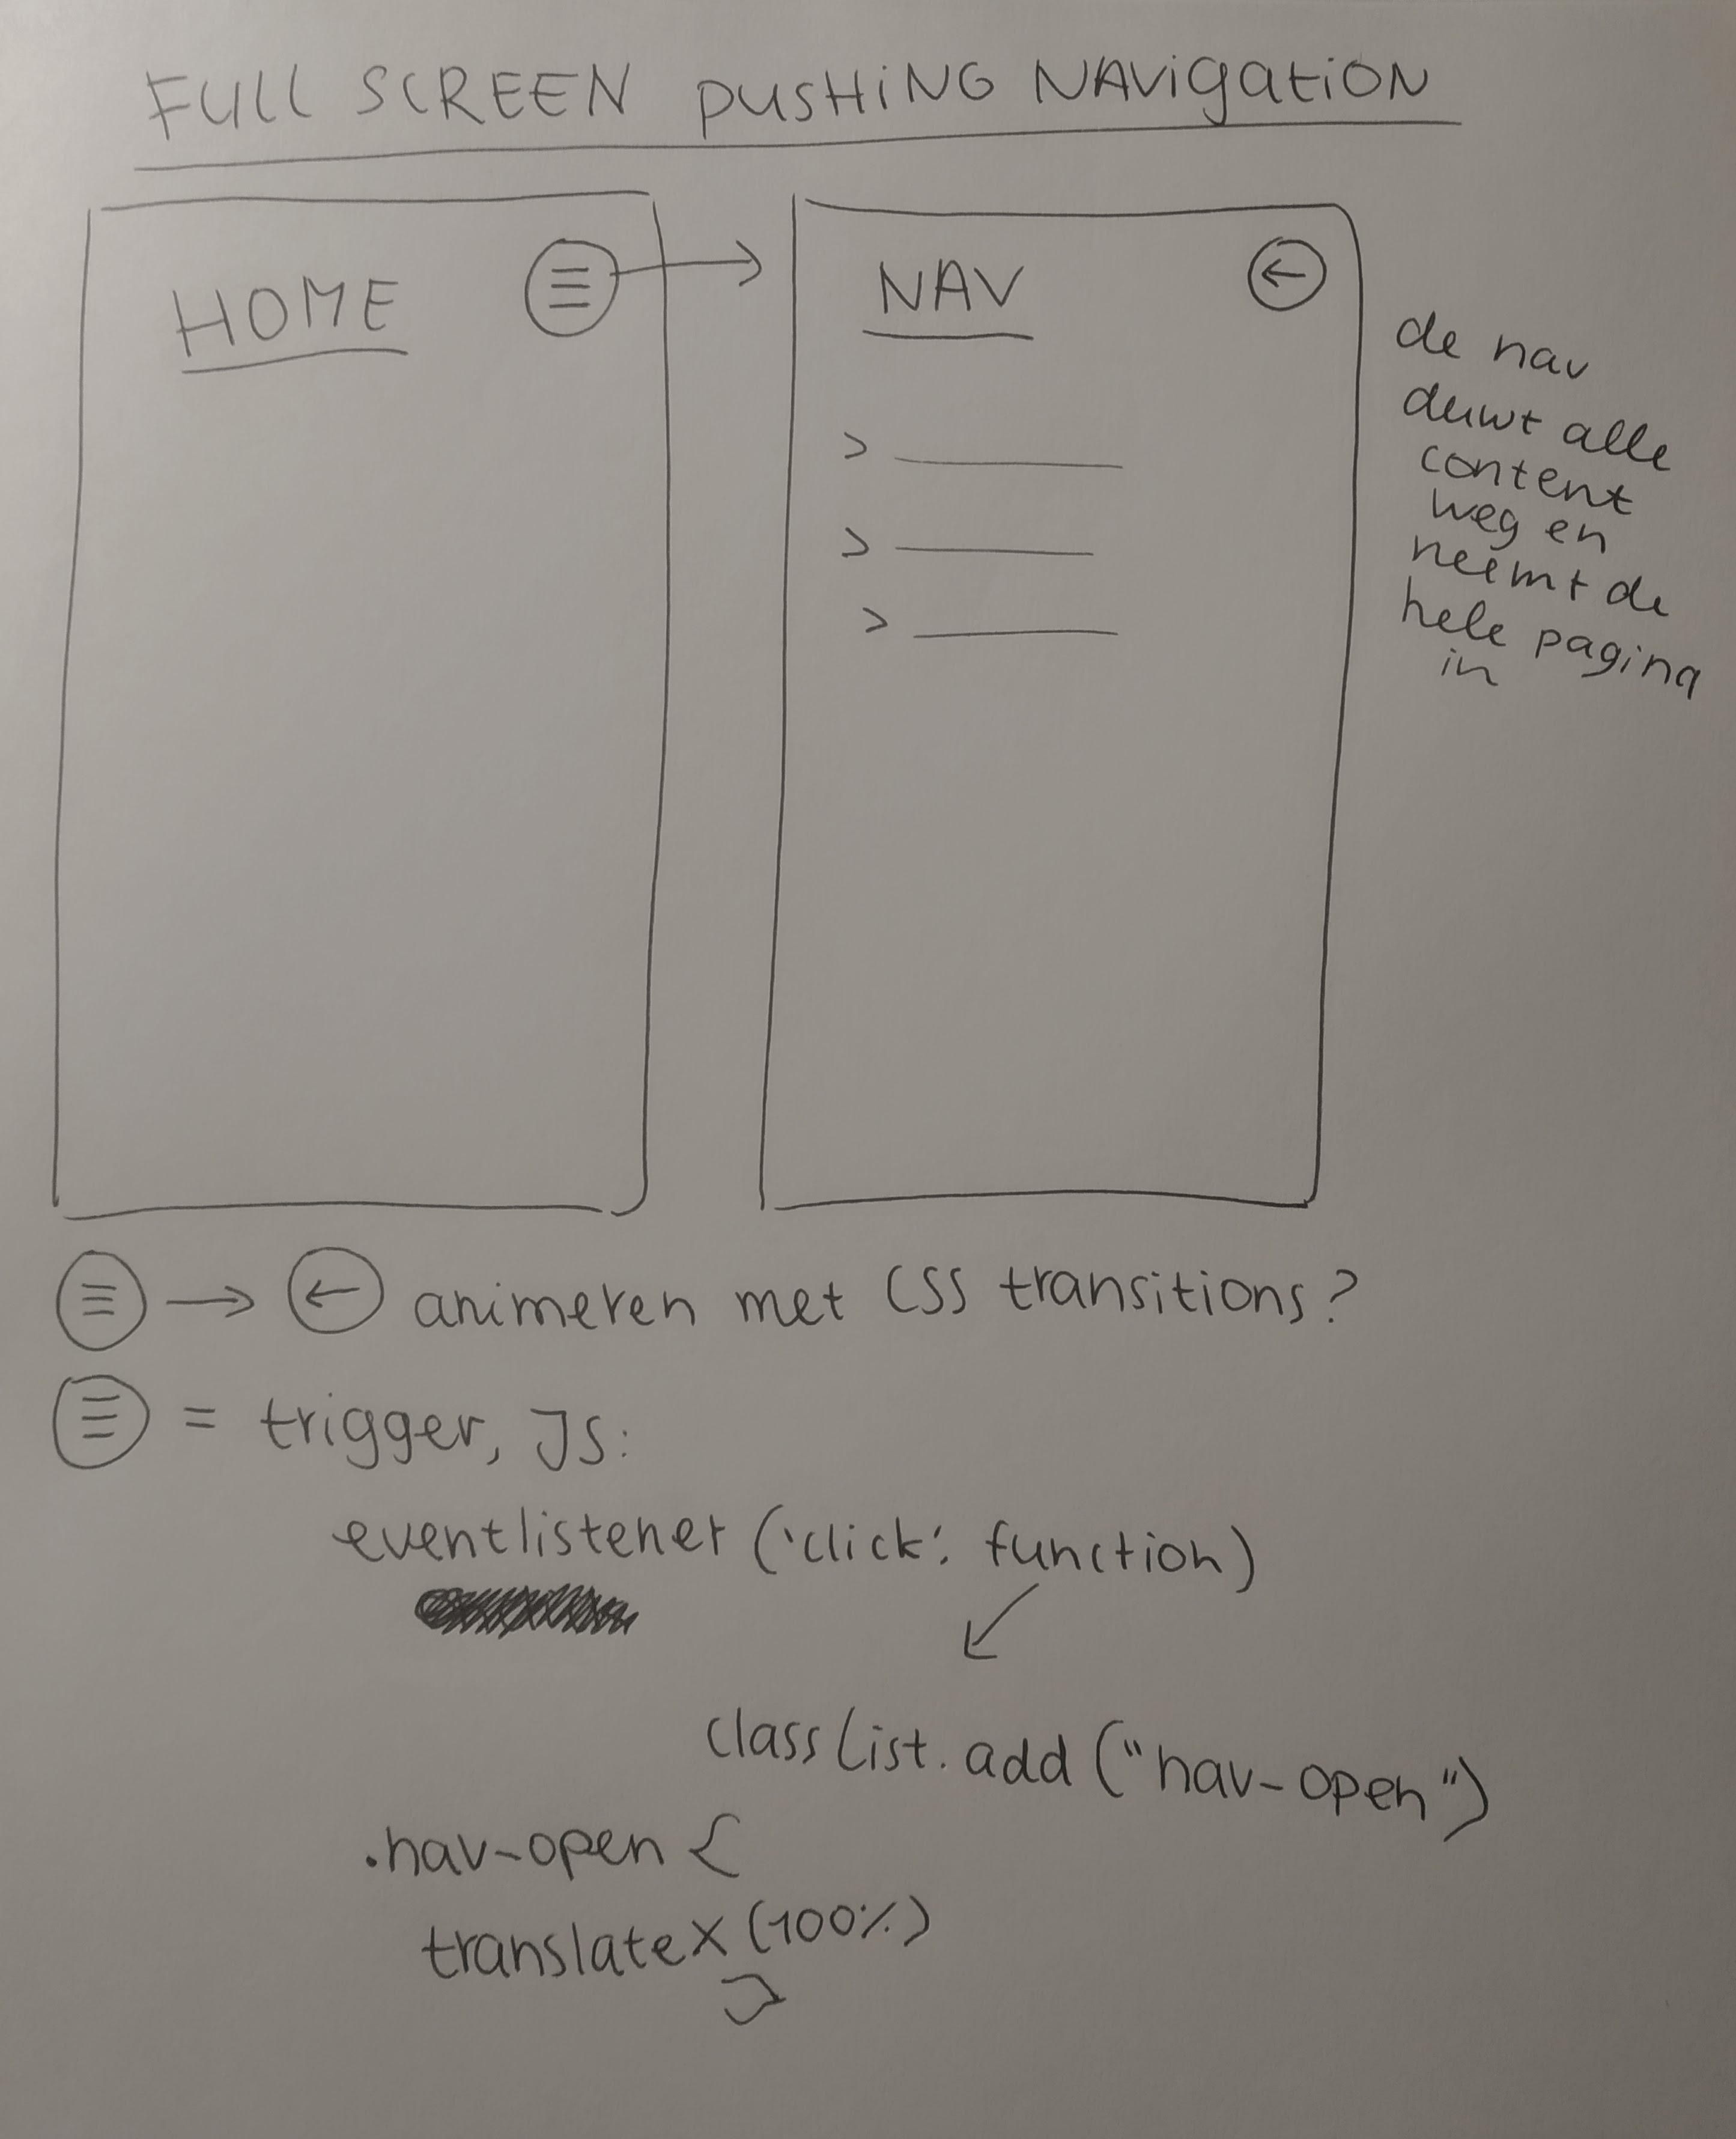 FULL SCREEN PUSHING NAVIGATION
HOME
NAV
de nav
duwt alle
content
weg en
neemt de
hele pagina
in
>
>
>
→ animeren met CSS transitions?
= trigger, JS:
eventlistener ('click', function)
classList.add ("nav-open")
.nav-open {
translateX (100%)
}